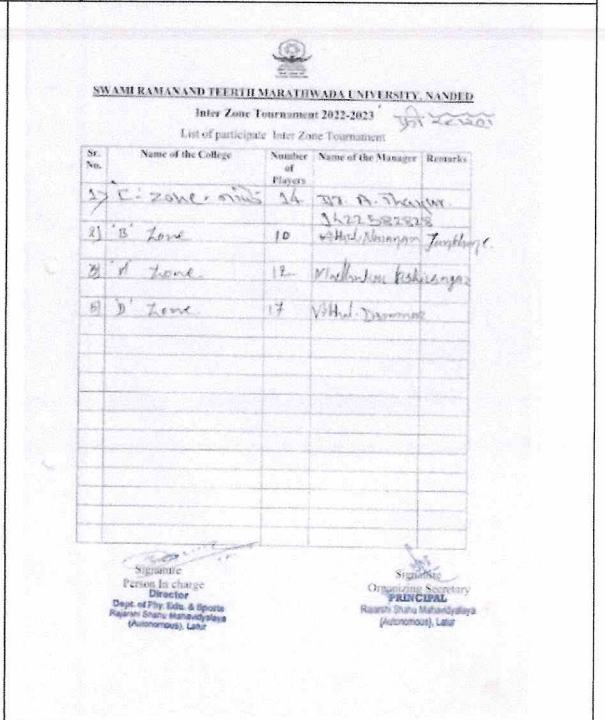 SWAMI RAMANAND TEERTH MARATHWADA UNIVERSITY, NANDED
Inter Zone Tournament 2022-2023
List of participate Inter Zone Tournament
Sr. No. Name of the College Number of Players Name of the Manager Remarks
1) C - Zone - 14 Dr. A. Thakur
9422582828
2) 'B' Zone 10
3) 'A' Zone 12
'D' Zone 17 Vitthal
Signature
Person In charge
Director
Dept. of Phy. Edu. & Sports
Rajarshi Shahu Mahavidyalaya
(Autonomous), Latur
Signature
Organizing Secretary
PRINCIPAL
Rajarshi Shahu Mahavidyalaya
(Autonomous), Latur